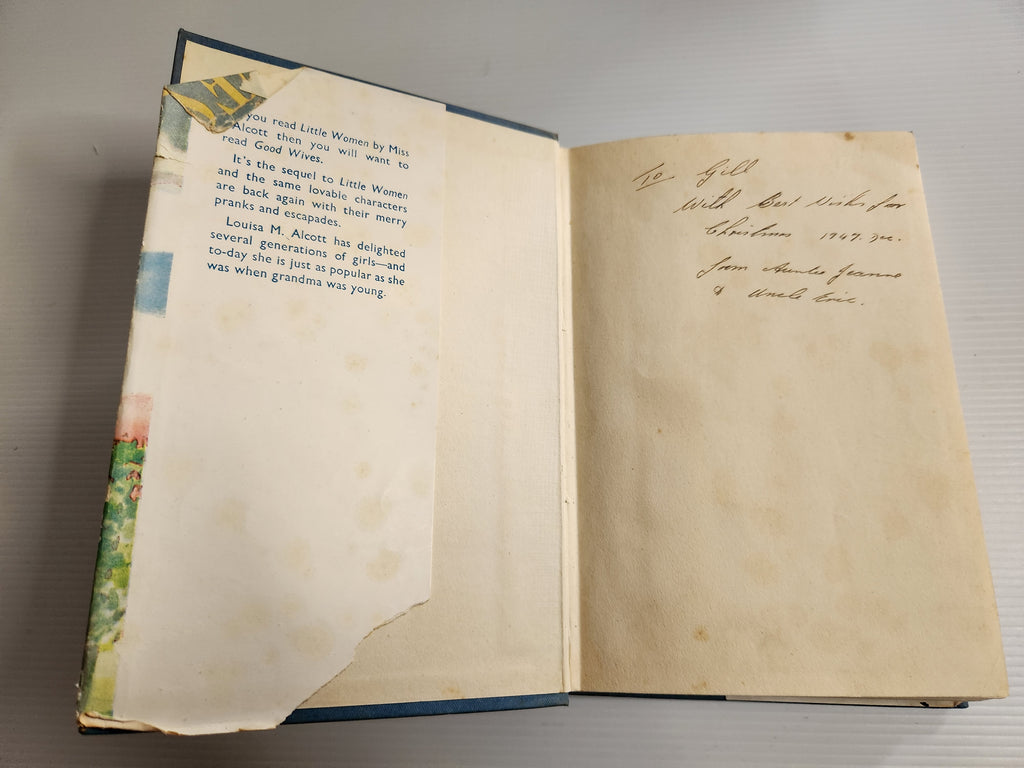 you read Little Women by Miss
Alcott then you will want to
read Good Wives.
It's the sequel to Little Women
and the same lovable characters
are back again with their merry
pranks and escapades.
Louisa M. Alcott has delighted
several generations of girls—and
to-day she is just as popular as she
was when grandma was young.
To Gill
With Best Wishes for
Christmas 1949.
from Auntie Jeanne
& Uncle Eric.